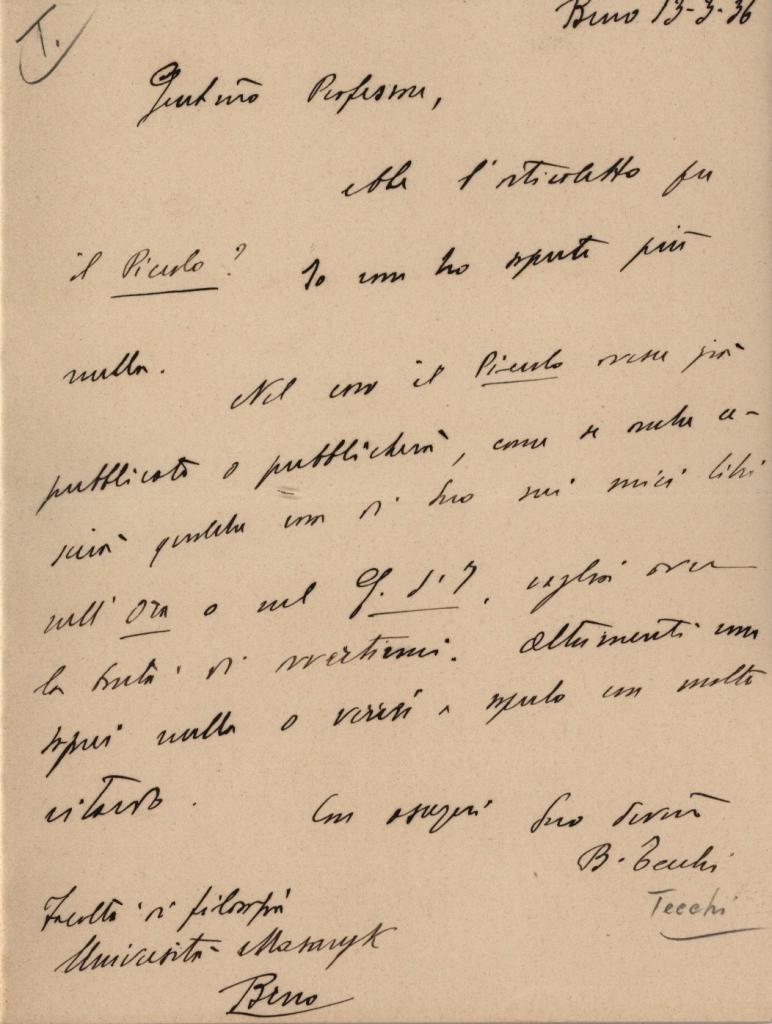 T.
Brno 13-3-36
Gentilmo Professore,
ebbe l'articoletto per
il Piccolo? Io non ho saputo più
nulla.
Nel caso il Piccolo avesse già
pubblicato o pubblicherà, come se anche u-
scirà qualche cosa di Suo sui miei libri
sull'Ora o sul G. d'I, voglia aver
la bontà di avvertirmi. Altrimenti non
saprei nulla o verrei a saperlo con molto
ritardo.
Con ossequi Suo devmo
B. Tecchi
Tecchi
Facoltà di filosofia
Università Masaryk
Brno